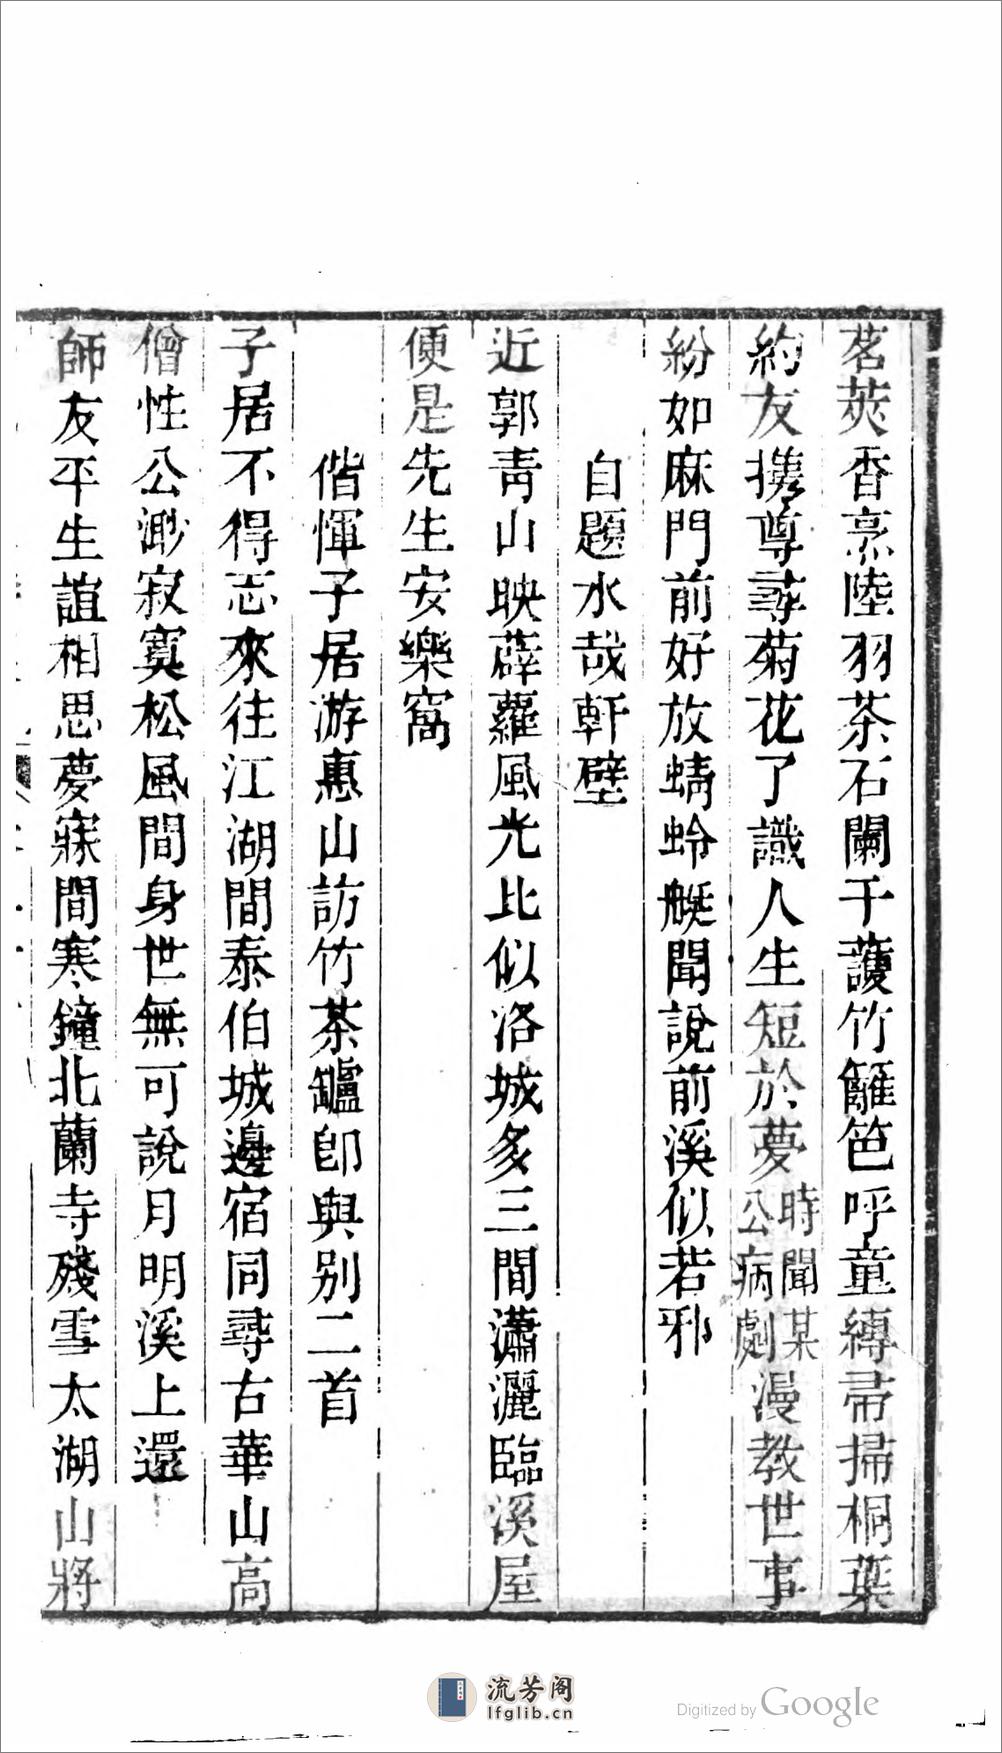 茗莢香烹陸羽茶石闌干護竹籬笆呼童縛帚掃桐葉
約友攜尊尋菊花了識人生短於夢時聞某公病劇漫教世事
紛如麻門前好放蜻蛉艇聞說前溪似若邪
自題水哉軒壁
近郭青山映薜蘿風光比似洛城多三間瀟灑臨溪屋
便是先生安樂窩
偕惲子居游惠山訪竹茶罏卽與別二首
子居不得志來往江湖間泰伯城邊宿同尋古華山高
僧性公渺寂寞松風間身世無可說月明溪上還
師友平生誼相思夢寐間寒鐘北蘭寺殘雪太湖山將
流芳阁
lfglib.cn
Digitized by Google